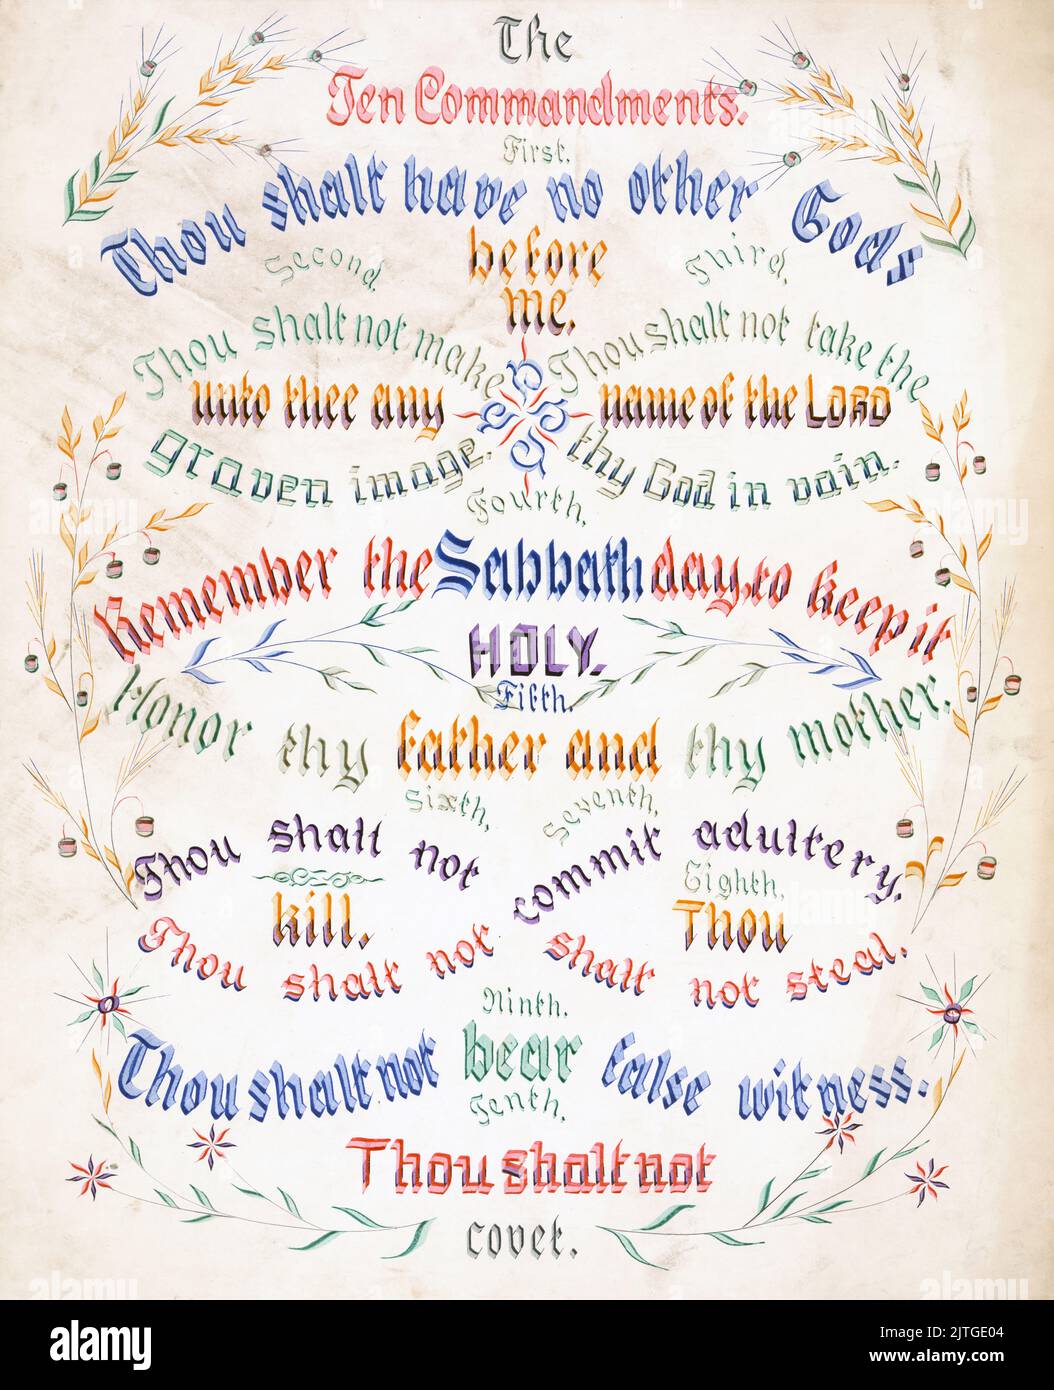 The
Ten Commandments.
First.
Thou shalt have no other Gods
before
me.
Second,
Thou shalt not make
unto thee any
graven image.
Third,
Thou shalt not take the
name of the LORD
thy God in vain.
Fourth,
Remember the Sabbath day, to keep it
HOLY.
Fifth.
Honor thy father and thy mother.
Sixth,
Thou shalt not
kill.
Seventh,
Thou shalt not commit adultery.
Eighth,
Thou
shalt not steal.
Ninth.
Thou shalt not bear false witness.
Tenth,
Thou shalt not
covet.
alamy
Image ID: 2JTGE04
www.alamy.com